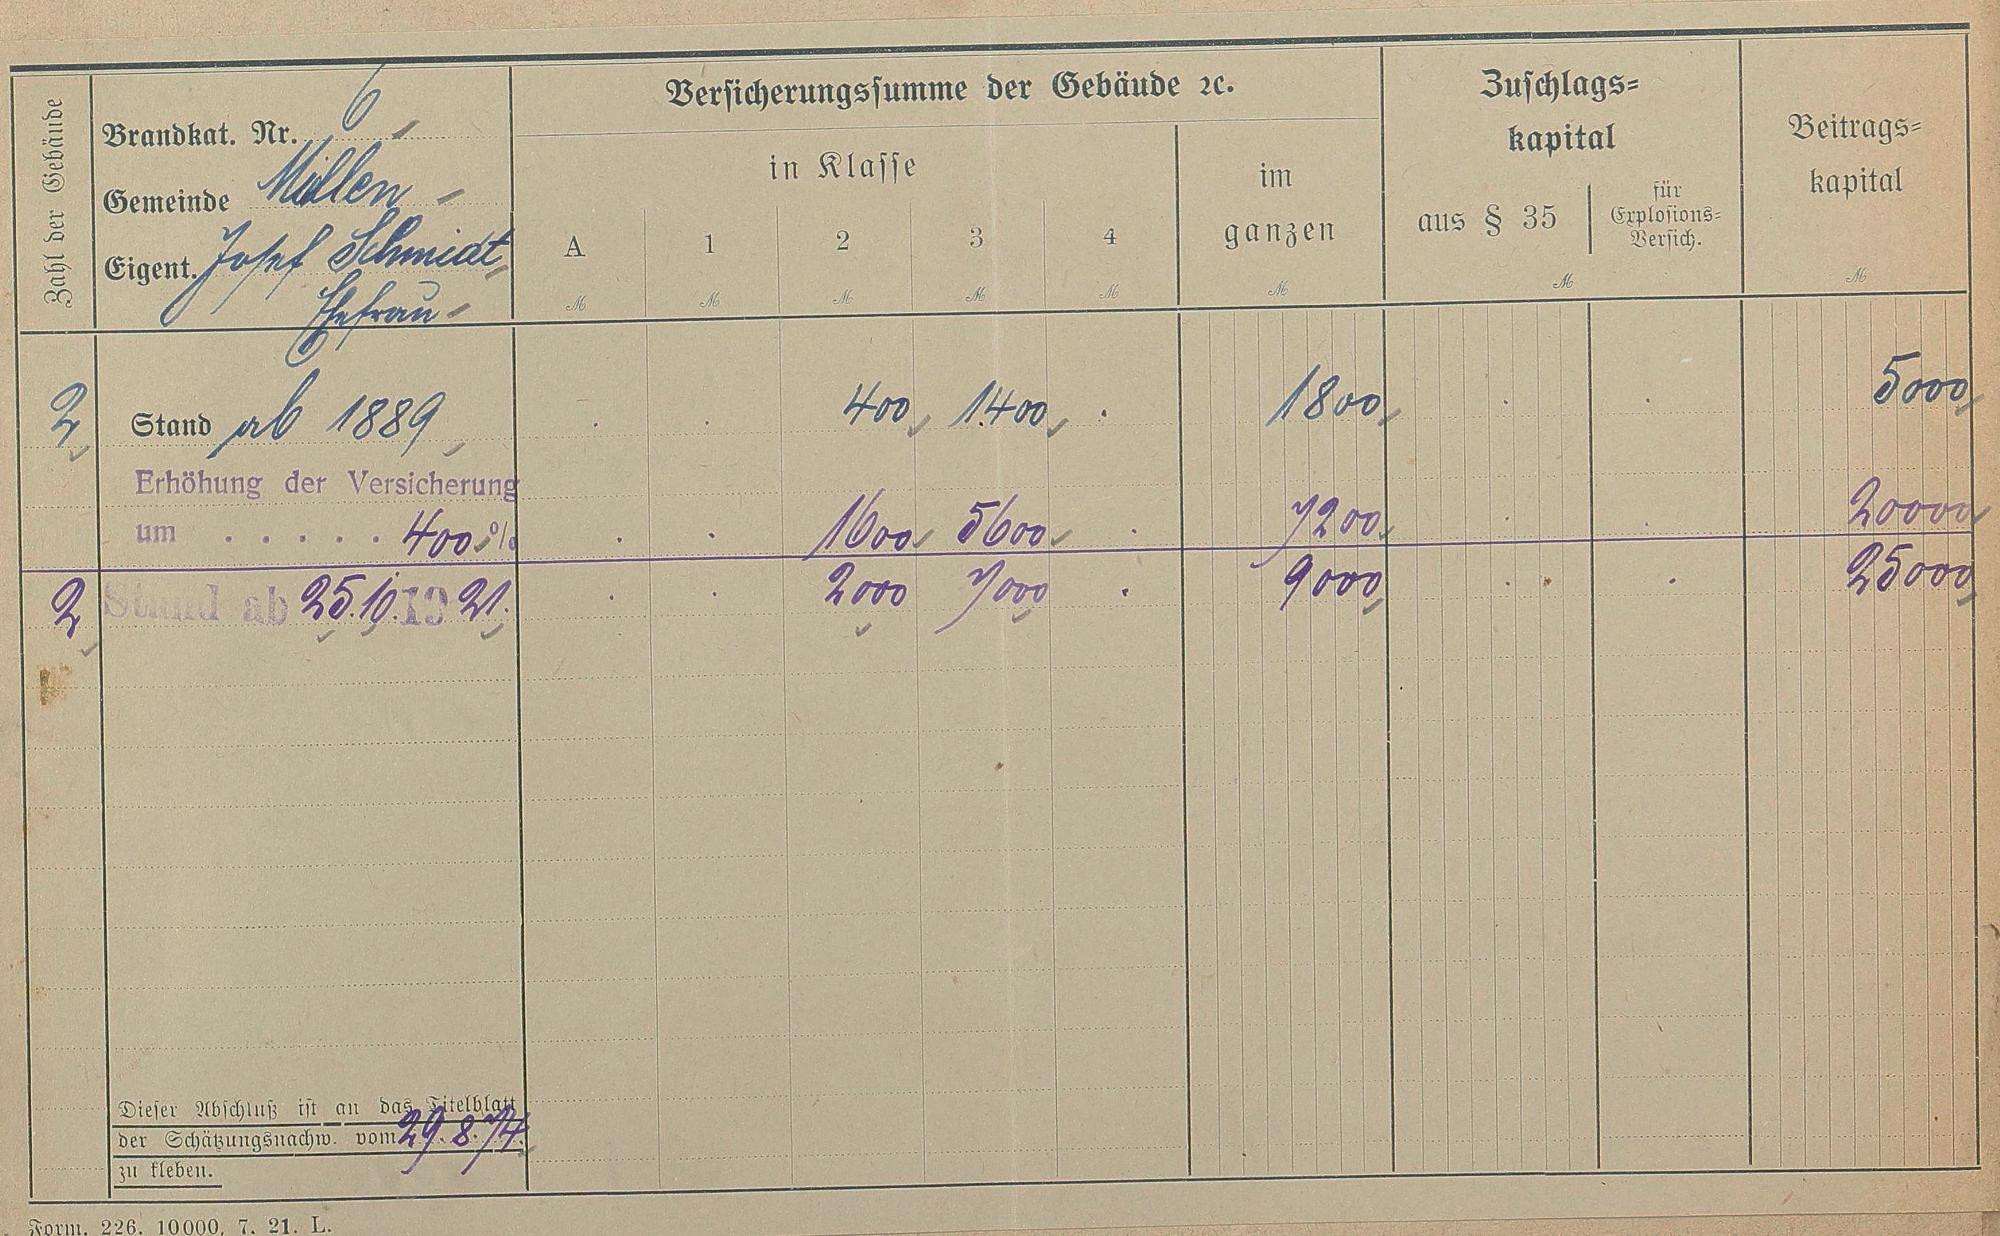 Zahl der Gebäude
Brandkat. Nr. 6
Gemeinde Millen
Eigent. Josef Schmidt
Ehefrau
Versicherungssumme der Gebäude ꝛc.
in Klasse
A 1 2 3 4
M M M M M
im
ganzen
M
Zuschlags=
kapital
aus § 35
für
Explosions=
Versich.
M
Beitrags=
kapital
M
2 Stand ab 1889 . . 400 1400 . 1800 . . 5000
Erhöhung der Versicherung
um . . . . . 400 % . . 1600 5600 . 7200 . . 20000
2 Stand ab 25.10.1921. . . 2000 7000 . 9000 . . 25000
Dieser Abschluß ist an das Titelblatt
der Schätzungsnachw. vom 29.8.74.
zu kleben.
Form. 226. 10000. 7. 21. L.